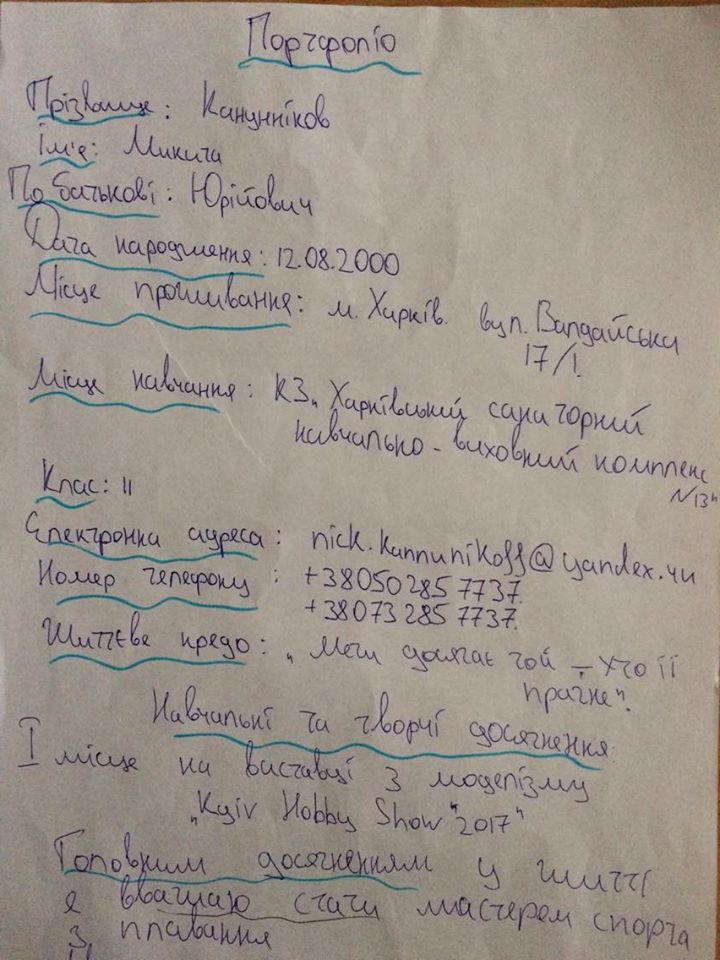 Портфоліо
Прізвище: Канунніков
Ім'я: Микита
По батькові: Юрійович
Дата народження: 12.08.2000
Місце проживання: м. Харків. вул. Валдайська
17/1.
Місце навчання: КЗ „Харківський санаторний
навчально-виховний комплекс
№13"
Клас: 11
Електронна адреса: nick.kannunikoff@yandex.ru
Номер телефону: +380502857737.
+380732857737.
Життєве кредо: „Мети досягає той – хто її
прагне".
Навчальні та творчі досягнення:
I місце на виставці з моделізму
„Kyiv Hobby Show "2017"
Головним досягненням у житті
я вважаю стати мастером спорта
з плавання